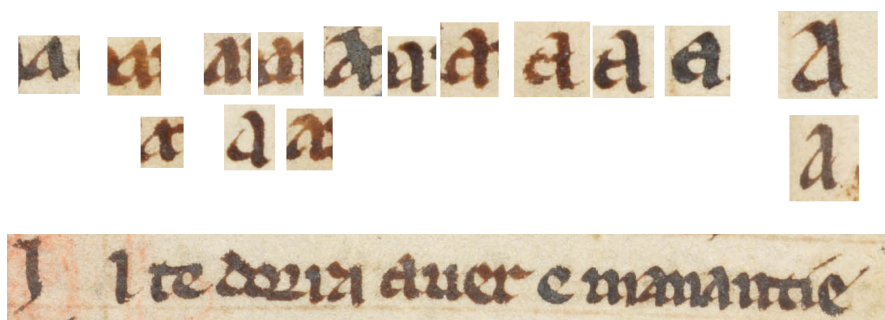 a a a a a a a a a a a
a a a a
I l te doria auer e manantie